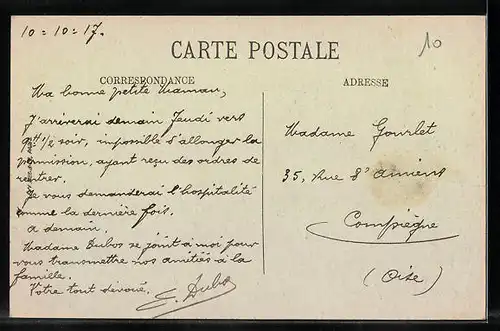 10=10=17.
10
CARTE POSTALE
CORRESPONDANCE
ADRESSE
Ma bonne petite Maman,
J'arriverai demain Jeudi vers
9H 1/2 soir, impossible d'allonger la
permission, ayant reçu des ordres de
rentrer.
Je vous demanderai l'hospitalité
comme la dernière fois.
a demain.
Madame Dubos se joint à moi pour
vous transmettre nos amitiés à la
famille.
Votre tout dévoué.
E. Dubos
Madame Gourlet
35, Rue d'Amiens
Compiègne
(Oise)